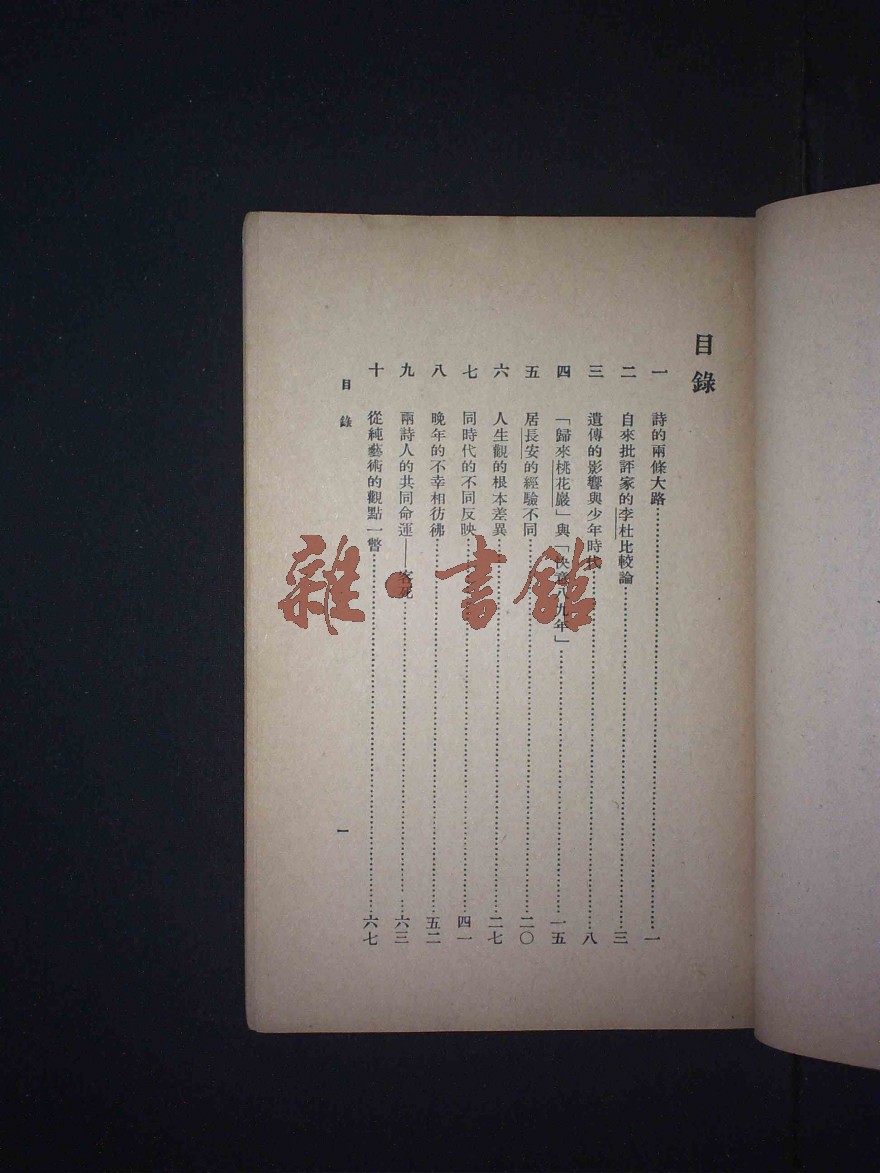 目錄
一 詩的兩條大路……一
二 自來批評家的李杜比較論……三
三 遺傳的影響與少年時代……八
四 「歸來桃花巖」與「快意八九年」……一五
五 居長安的經驗不同……二〇
六 人生觀的根本差異……二七
七 同時代的不同反映……四一
八 晚年的不幸相彷彿……五二
九 兩詩人的共同命運——客死……六三
十 從純藝術的觀點一瞥……六七
目錄 一
雜·書館